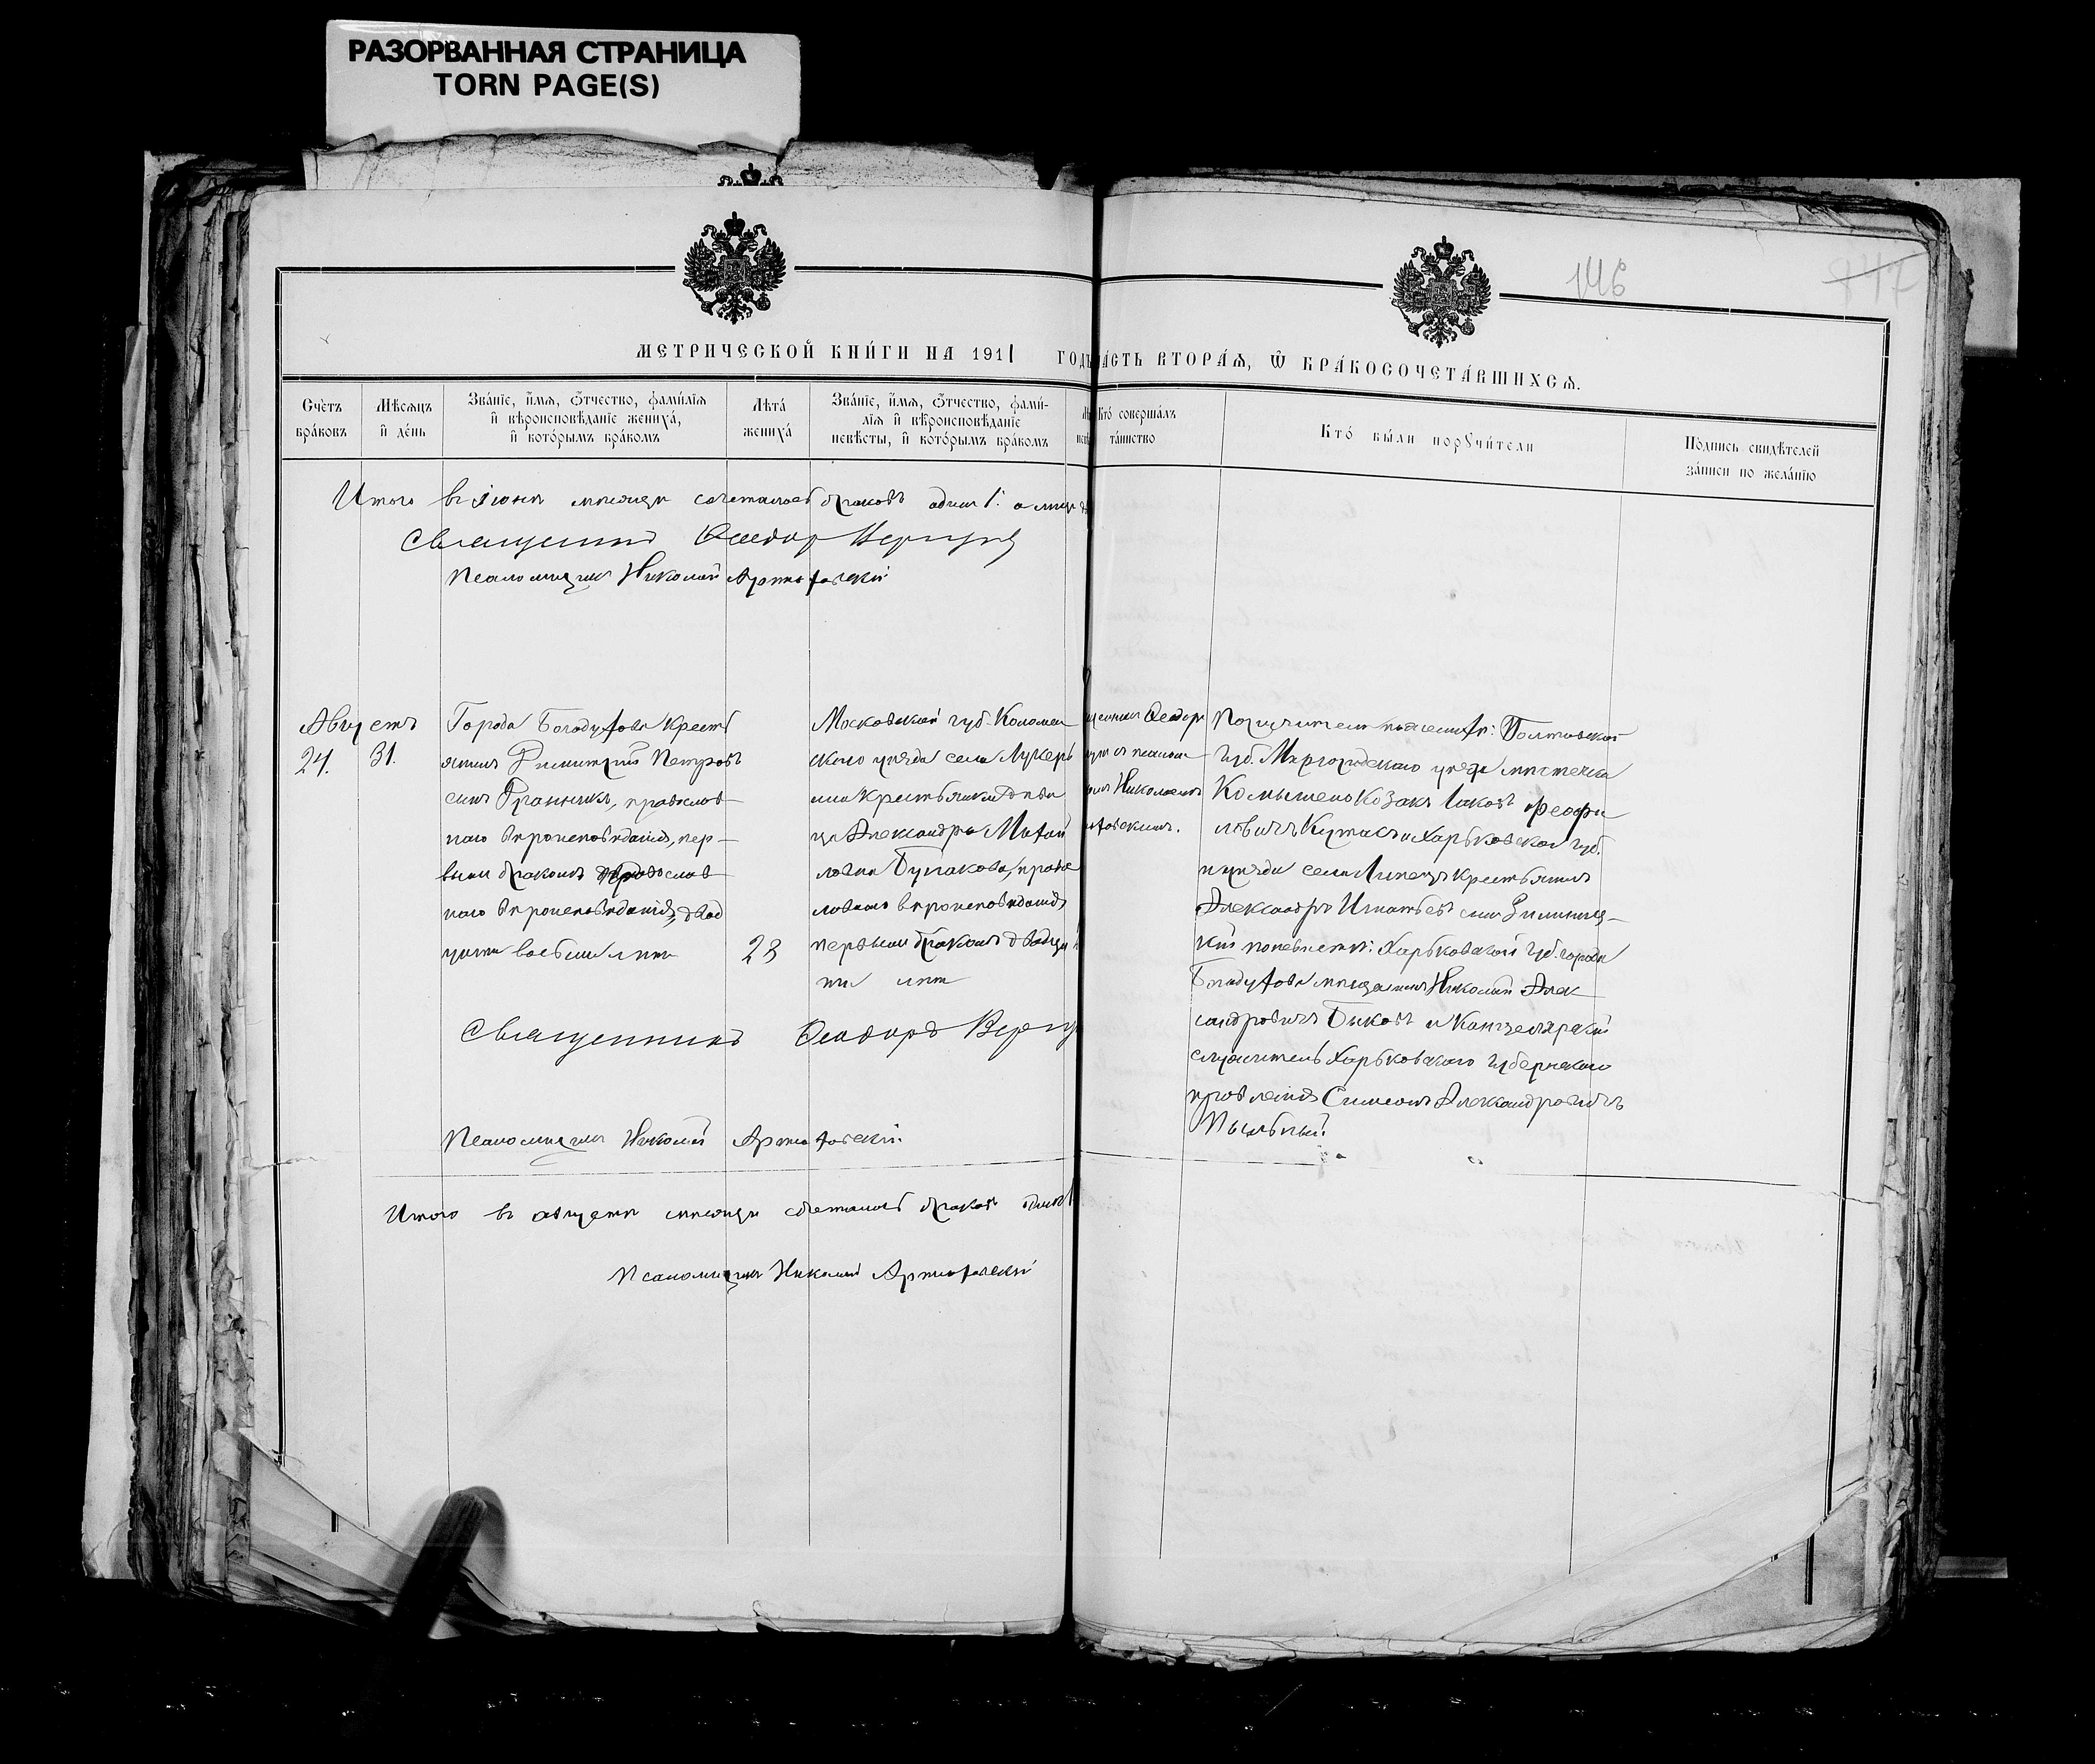 РАЗОРВАННАЯ СТРАНИЦА
TORN PAGE(S)
146
МЕТРИЧЕСКОЙ КНИ́ГИ НА 1911 ГОДЪ
ЧА́СТЬ ВТОРА́Ѧ, Ѿ БРА́КОСОЧЕТА́ВШИХСѦ.
Сче́тъ бра́ковъ
Мѣ́сяцъ и де́нь
Зва́нїе, и́мѧ, ѻ́тчество, фами́лїѧ и вѣроисповѣ́данїе жениха́, и кото́рымъ бра́комъ
Лѣта́ жениха́
Зва́нїе, и́мѧ, ѻ́тчество, фами́-лїѧ и вѣроисповѣ́данїе невѣ́сты, и кото́рымъ бра́комъ
Кто́ соверша́лъ та́инство
Кто́ бы́ли порꙋчи́тели
По́дпись свидѣ́телей за́писи по жела́нїю
Итого въ іюнѣ мѣсяцѣ сочеталось браковъ одинъ 1.
Священникъ Ѳеодоръ
Псаломщикъ Николай Артюховскій
Августъ
24. 31.
Города Богодухова крестъ
янинъ Димитрій Петровъ
сынъ православ
наго вѣроисповѣданія, пер-
вымъ бракомъ православ
наго вѣроисповѣданія, двад
цати восьми лѣтъ
28
Московской губ. Коломен
скаго уѣзда села
крестьянка дѣви
ца Александра Михай
лова Булакова, право
славнаго вѣроисповѣданія,
первымъ бракомъ двадца
ти лѣтъ
щенникъ Ѳеодоръ
Николаемъ
юховскимъ.
Поручители по женихѣ: Полтавской
губ. Миргородскаго уѣзда мѣстечка
Комышено козакъ Іаковъ Феофи
ловичъ и Харьковской губ.
и уѣзда села Липецъ крестьянинъ
Александръ Игнатьевъ сынъ
кій по невѣстѣ: Харьковской губ. города
Богодухова мѣщанинъ Николай Алек
сандровичъ Быковъ и канцелярскій
служитель Харьковскаго губернскаго
правленія Симеонъ Александровичъ
Пыльный.
Священникъ Ѳеодоръ
Псаломщикъ Николай Артюховскій.
Итого въ августѣ мѣсяцѣ сочеталось браковъ одинъ 1
Псаломщикъ Николай Артюховскій